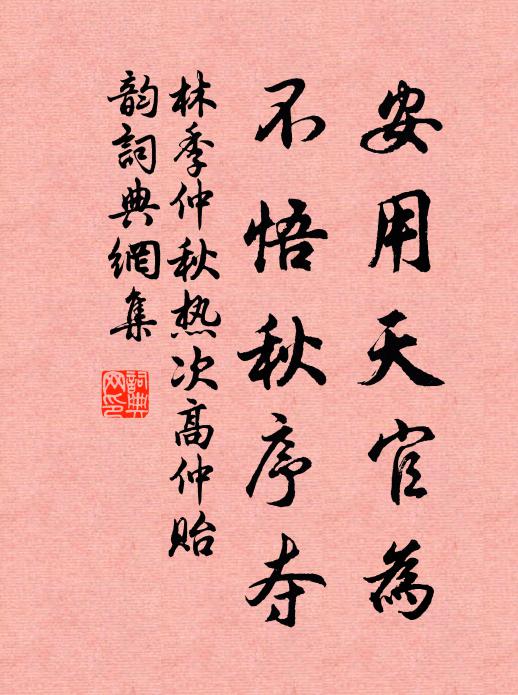 安用天官為
不悟秋序夺
林季仲秋热次高仲貽
韵詞典網集
詞典
网印